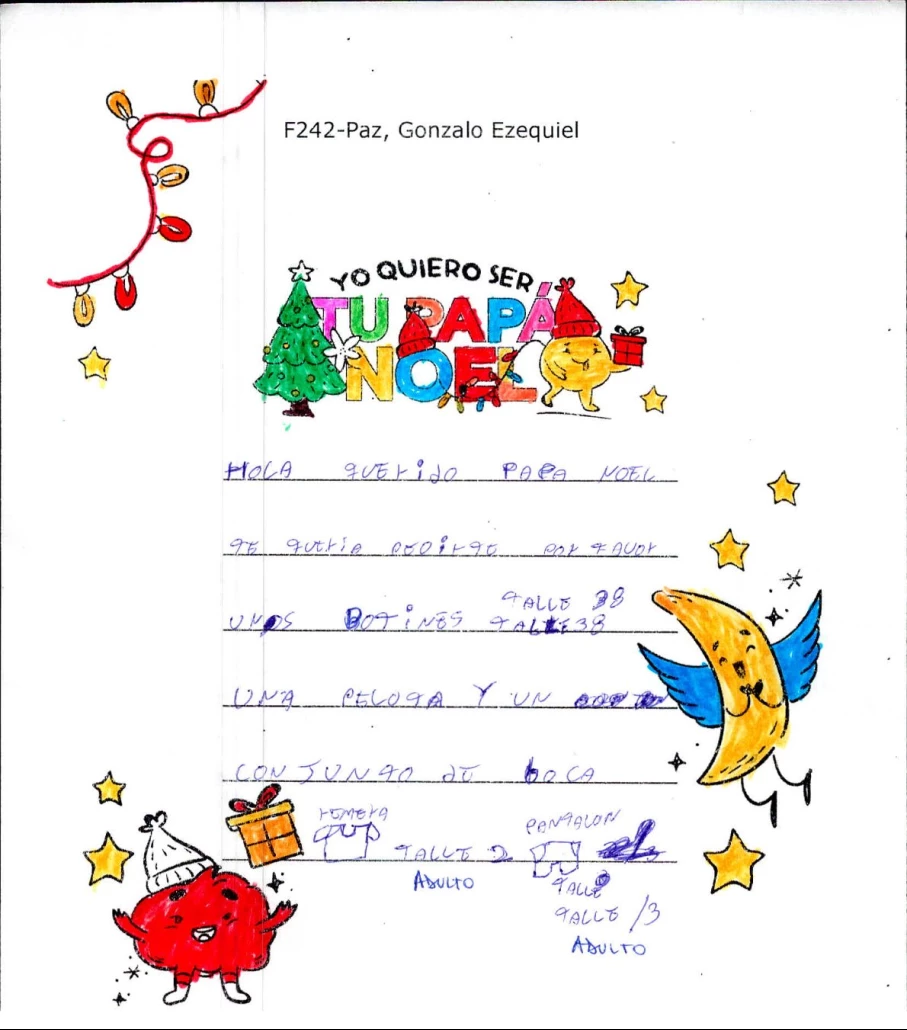 F242-Paz, Gonzalo Ezequiel
YO QUIERO SER
TU PAPÁ
NOEL
HOLA querido PAPA NOEL
te queria pedirte por favor
TALLE 38
UNOS BOTiNES TALLE 38
UNA PELOTA Y UN
CONJUNTO de boca
REMERA
PANTALON
TALLE 2
ADULTO
TALLE
TALLE 13
ADULTO